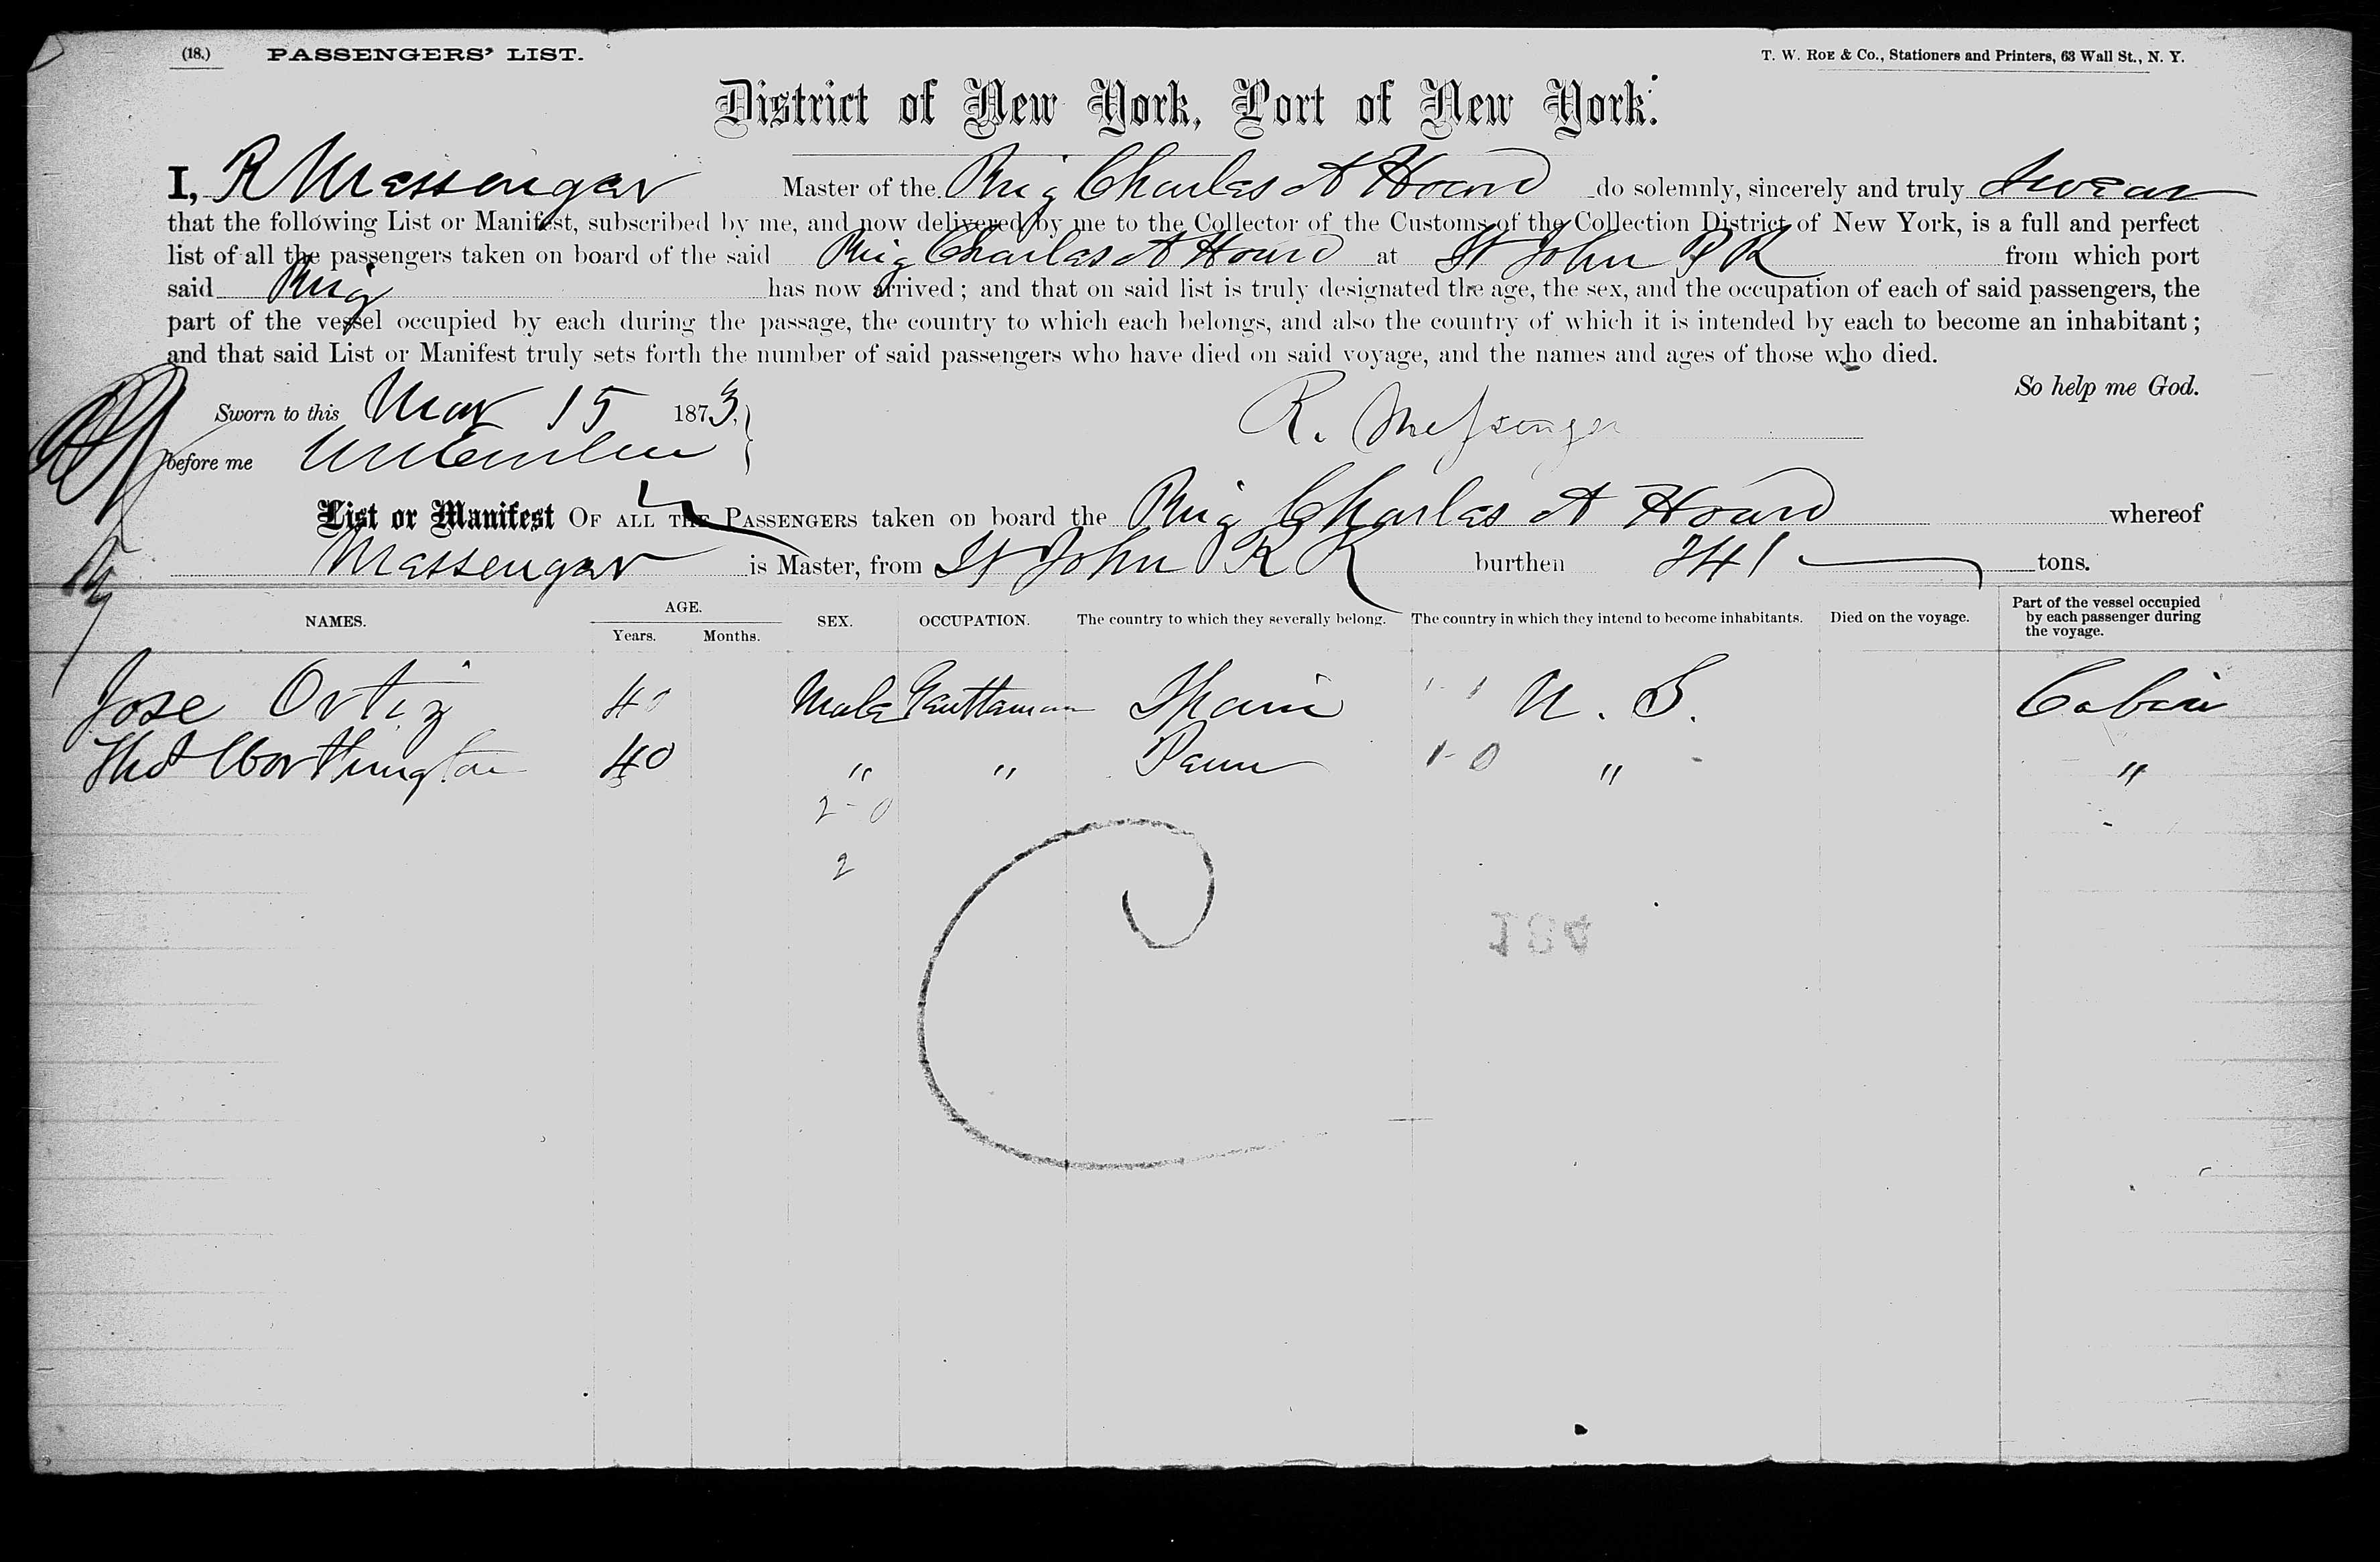 (18.) PASSENGERS' LIST. T. W. ROE & Co., Stationers and Printers, 63 Wall St., N. Y.
District of New York, Port of New York.
I, R Messenger Master of the Brig Charles A Hoard do solemnly, sincerely and truly swear
that the following List or Manifest, subscribed by me, and now delivered by me to the Collector of the Customs of the Collection District of New York, is a full and perfect
list of all the passengers taken on board of the said Brig Charles A Hoard at St John P R from which port
said Brig has now arrived; and that on said list is truly designated the age, the sex, and the occupation of each of said passengers, the
part of the vessel occupied by each during the passage, the country to which each belongs, and also the country of which it is intended by each to become an inhabitant;
and that said List or Manifest truly sets forth the number of said passengers who have died on said voyage, and the names and ages of those who died.
So help me God.
Sworn to this Mar 15 1873,
R. Messenger
before me
List or Manifest OF ALL THE PASSENGERS taken on board the Brig Charles A Hoard whereof
Messenger is Master, from St John P R burthen 241 tons.
NAMES. AGE. Years. Months. SEX. OCCUPATION. The country to which they severally belong. The country in which they intend to become inhabitants. Died on the voyage. Part of the vessel occupied by each passenger during the voyage.
Jose Ortiz 40 Male Gentleman Spain U. S. Cabin
Thos Worthington 40 " " Penn 1-0 " "
2-0
2
C
184